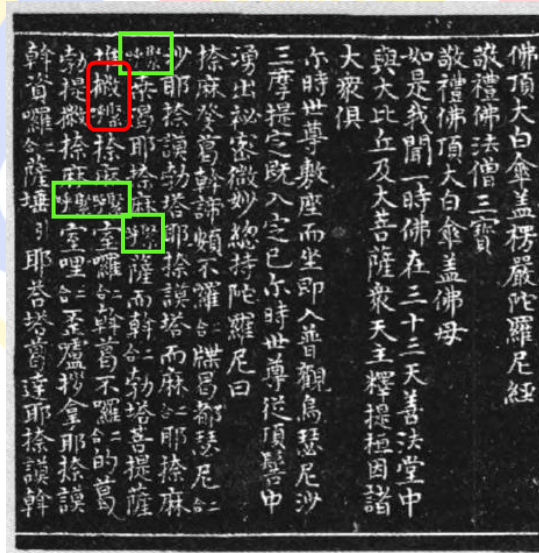 佛頂大白傘盖楞嚴陀羅尼經
敬禮佛法僧三寶
敬禮佛頂大白傘盖佛母
如是我聞一時佛在三十三天善法堂中
與大比丘及大菩薩衆天主釋提桓因諸
大衆俱
尒時世尊敷座而坐即入普觀烏瑟尼沙
三摩提定既入定已尒時世尊從頂髻中
湧出祕密微妙總持陀羅尼曰
捺麻癹葛斡諦頞不囉二合牒曷都瑟尼二合
抄耶捺謨勃塔耶捺謨塔而麻二合耶捺麻
桑曷耶捺麻薩而斡二合勃塔菩提薩
撒捺麻室囉二合斡葛不囉二合的葛
勃提撒捺麻室哩二合瀘拶拿耶捺謨
斡資囉二合薩引耶荅塔葛達耶捺謨斡